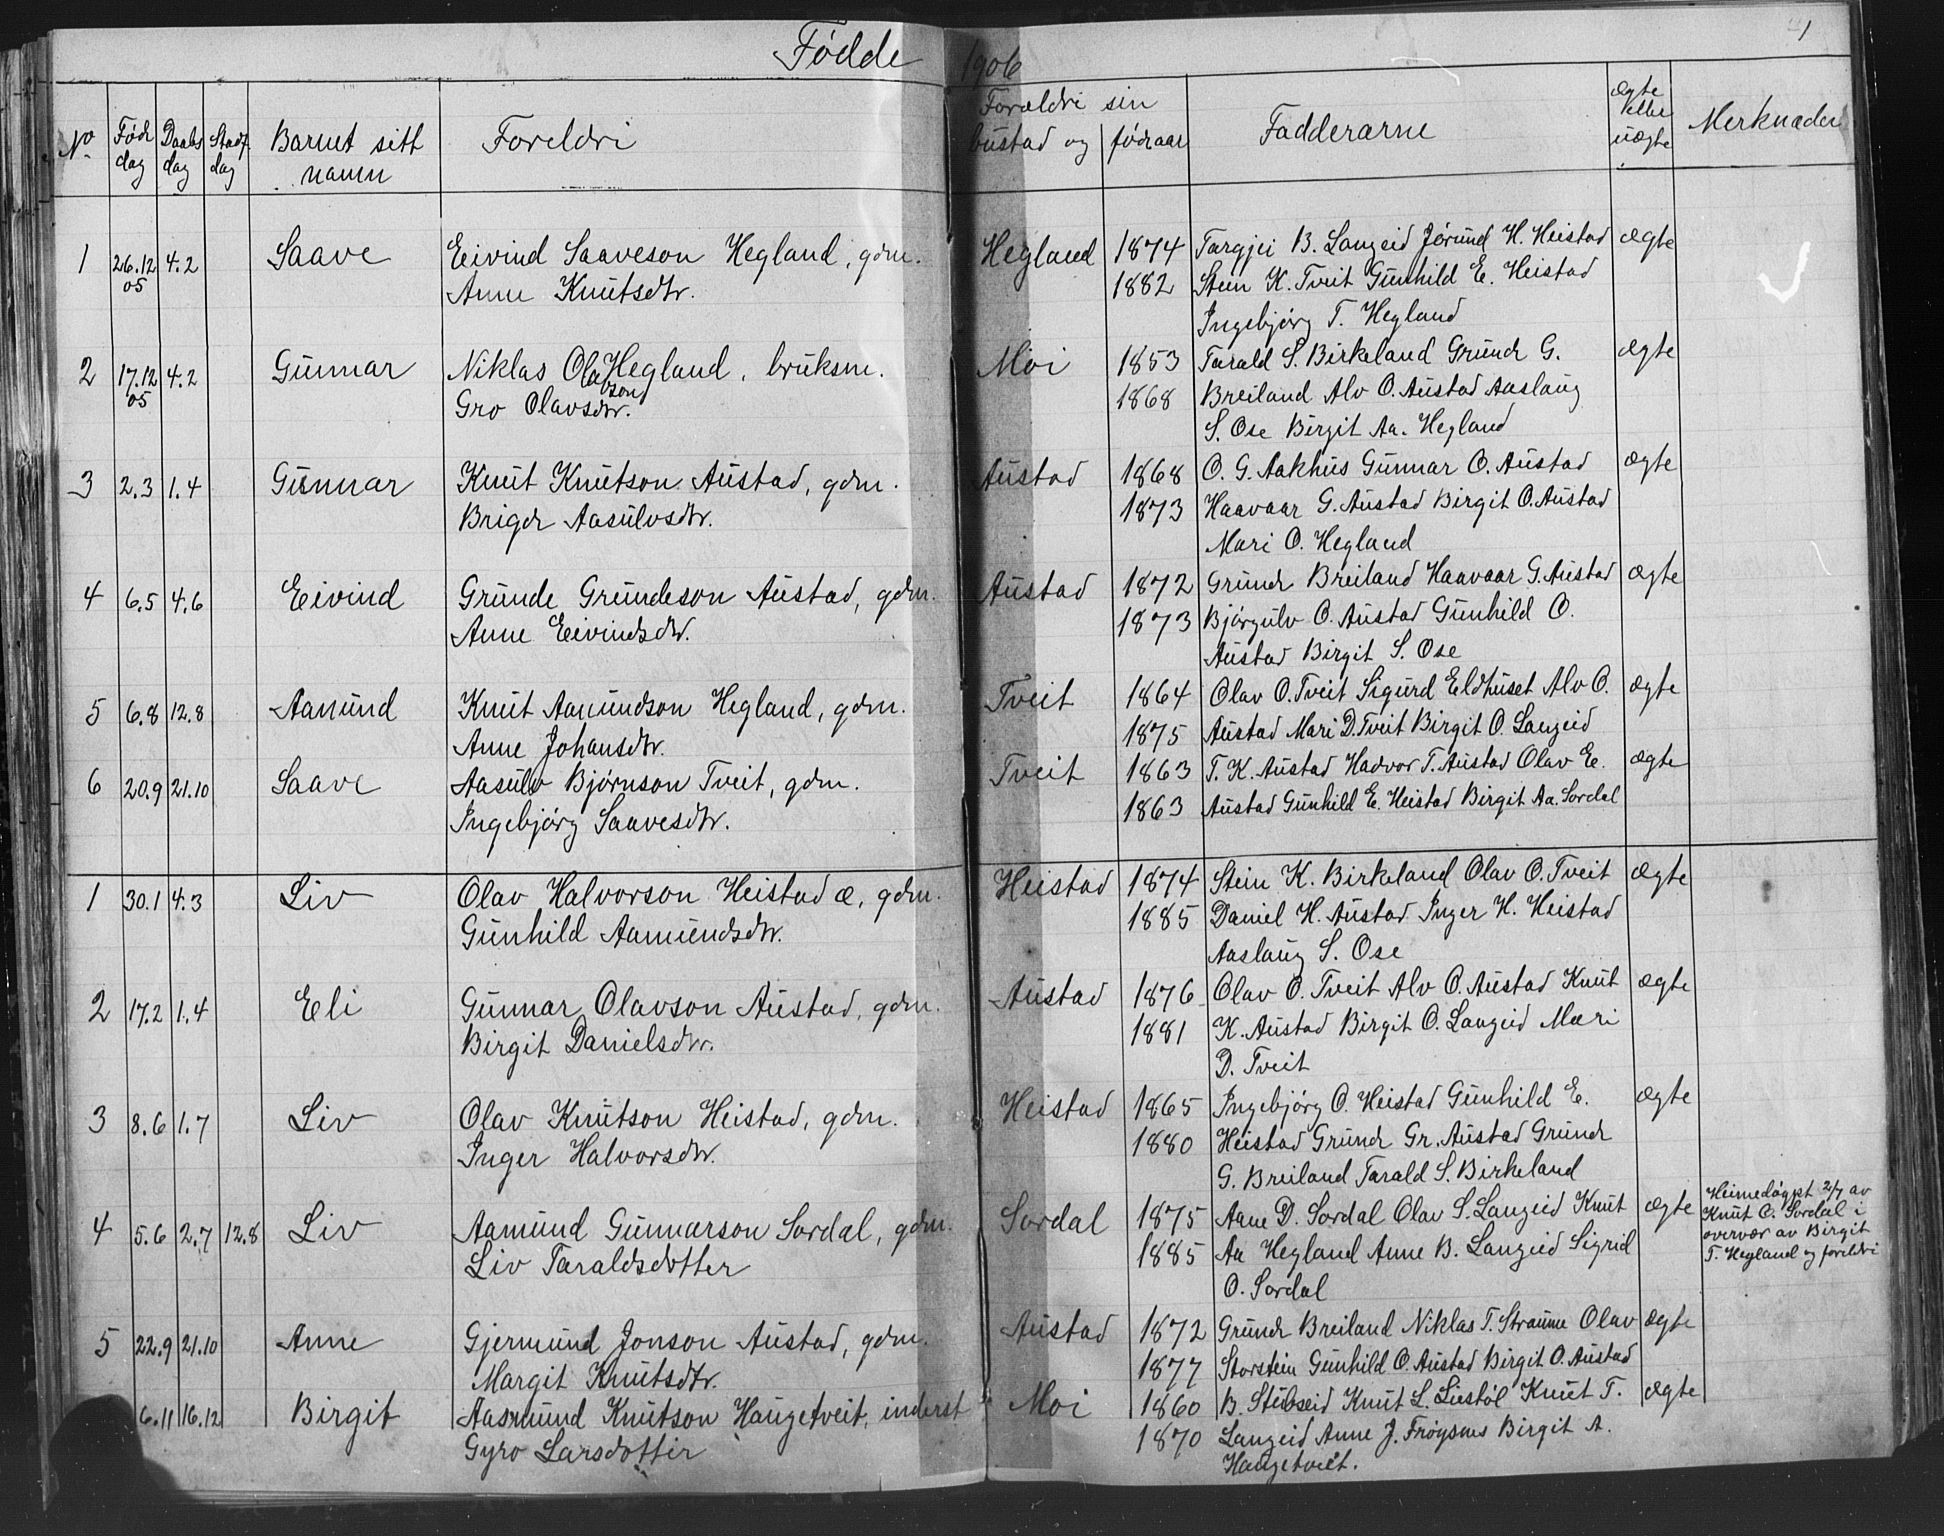 Fødde 1906
1
No Fødedag Daabsdag Stadf. dag Barnet sitt namn Foreldri Foreldri sin bustad og fødraar Fadderarne ægte elder uægte Merknader
1 26.12 05 4.2 Saave Eivind Saaveson Hegland, gdm. Hegland 1874 Targjei B. Langeid Jørund H. Heistad ægte
Anne Knutsdtr. 1882 Stein K. Tveit Gunhild E. Heistad
Ingebjørg T. Hegland
2 17.12 05 4.2 Gunnar Niklas Olavson Hegland, bruksm. Moi 1853 Tarald S. Birkeland Grunde G. ægte
Gro Olavsdtr. 1868 Breiland Alv O. Austad Aaslaug
S. Ose Birgit Aa. Hegland
3 2.3 1.4 Gunnar Knut Knutson Austad, gdm. Austad 1868 O. G. Aakhus Gunnar O. Austad ægte
Briger Aasulvsdtr. 1873 Haavaar G. Austad Birgit O. Austad
Mari O. Hegland
4 6.5 4.6 Eivind Grunde Grundeson Austad, gdm. Austad 1872 Grunde Breiland Haavaar G. Austad ægte
Anne Eivindsdtr. 1873 Bjørgulv O. Austad Gunhild O.
Austad Birgit S. Ose
5 6.8 12.8 Aamund Knut Aamundson Hegland, gdm. Tveit 1864 Olav O. Tveit Sigurd Eldhuset Alv O. ægte
Anne Johansdtr. 1875 Austad Mari D. Tveit Birgit O. Langeid
6 20.9 21.10 Saave Aasulv Bjørnson Tveit, gdm. Tveit 1863 T. K. Austad Hadvor T. Austad Olav E. ægte
Ingebjørg Saavesdtr. 1863 Austad Gunhild E. Heistad Birgit Aa. Sordal
1 30.1 4.3 Liv Olav Halvorson Heistad æ, gdm. Heistad 1874 Stein K. Birkeland Olav O. Tveit ægte
Gunhild Aamundsdtr. 1885 Daniel H. Austad Inger H. Heistad
Aaslaug S. Ose
2 17.2 1.4 Eli Gunnar Olavson Austad, gdm. Austad 1876 Olav O. Tveit Alv O. Austad Knut ægte
Birgit Danielsdtr. 1881 K. Austad Birgit O. Langeid Mari
D. Tveit
3 8.6 1.7 Liv Olav Knutson Heistad, gdm. Heistad 1865 Ingebjørg O. Heistad Gunhild E. ægte
Inger Halvorsdtr. 1880 Heistad Grunde Gr. Austad Grunde
G. Breiland Tarald S. Birkeland
4 5.6 2.7 12.8 Liv Aamund Gunnarson Sordal, gdm. Sordal 1875 Aane D. Sordal Olav S. Langeid Knut ægte Heimedøypt 2/7 av
Liv Taraldsdotter 1885 Aa Hegland Anne B. Langeid Sigrid Knut O. Sordal i
O. Sordal overvær av Birgit
T. Hegland og foreldri
5 22.9 21.10 Anne Gjermund Jonson Austad, gdm. Austad 1872 Grunde Breiland Niklas T. Straume Olav ægte
Margit Knutsdtr. 1877 Storstein Gunhild O. Austad Birgit O. Austad
6.11 16.12 Birgit Aasmund Knutson Haugetveit, inderst Moi 1860 B. Knut L. Knut T. ægte
Gyro Larsdotter 1870 Langeid Anne J. Frøysnes Birgit A.
Haugetveit.